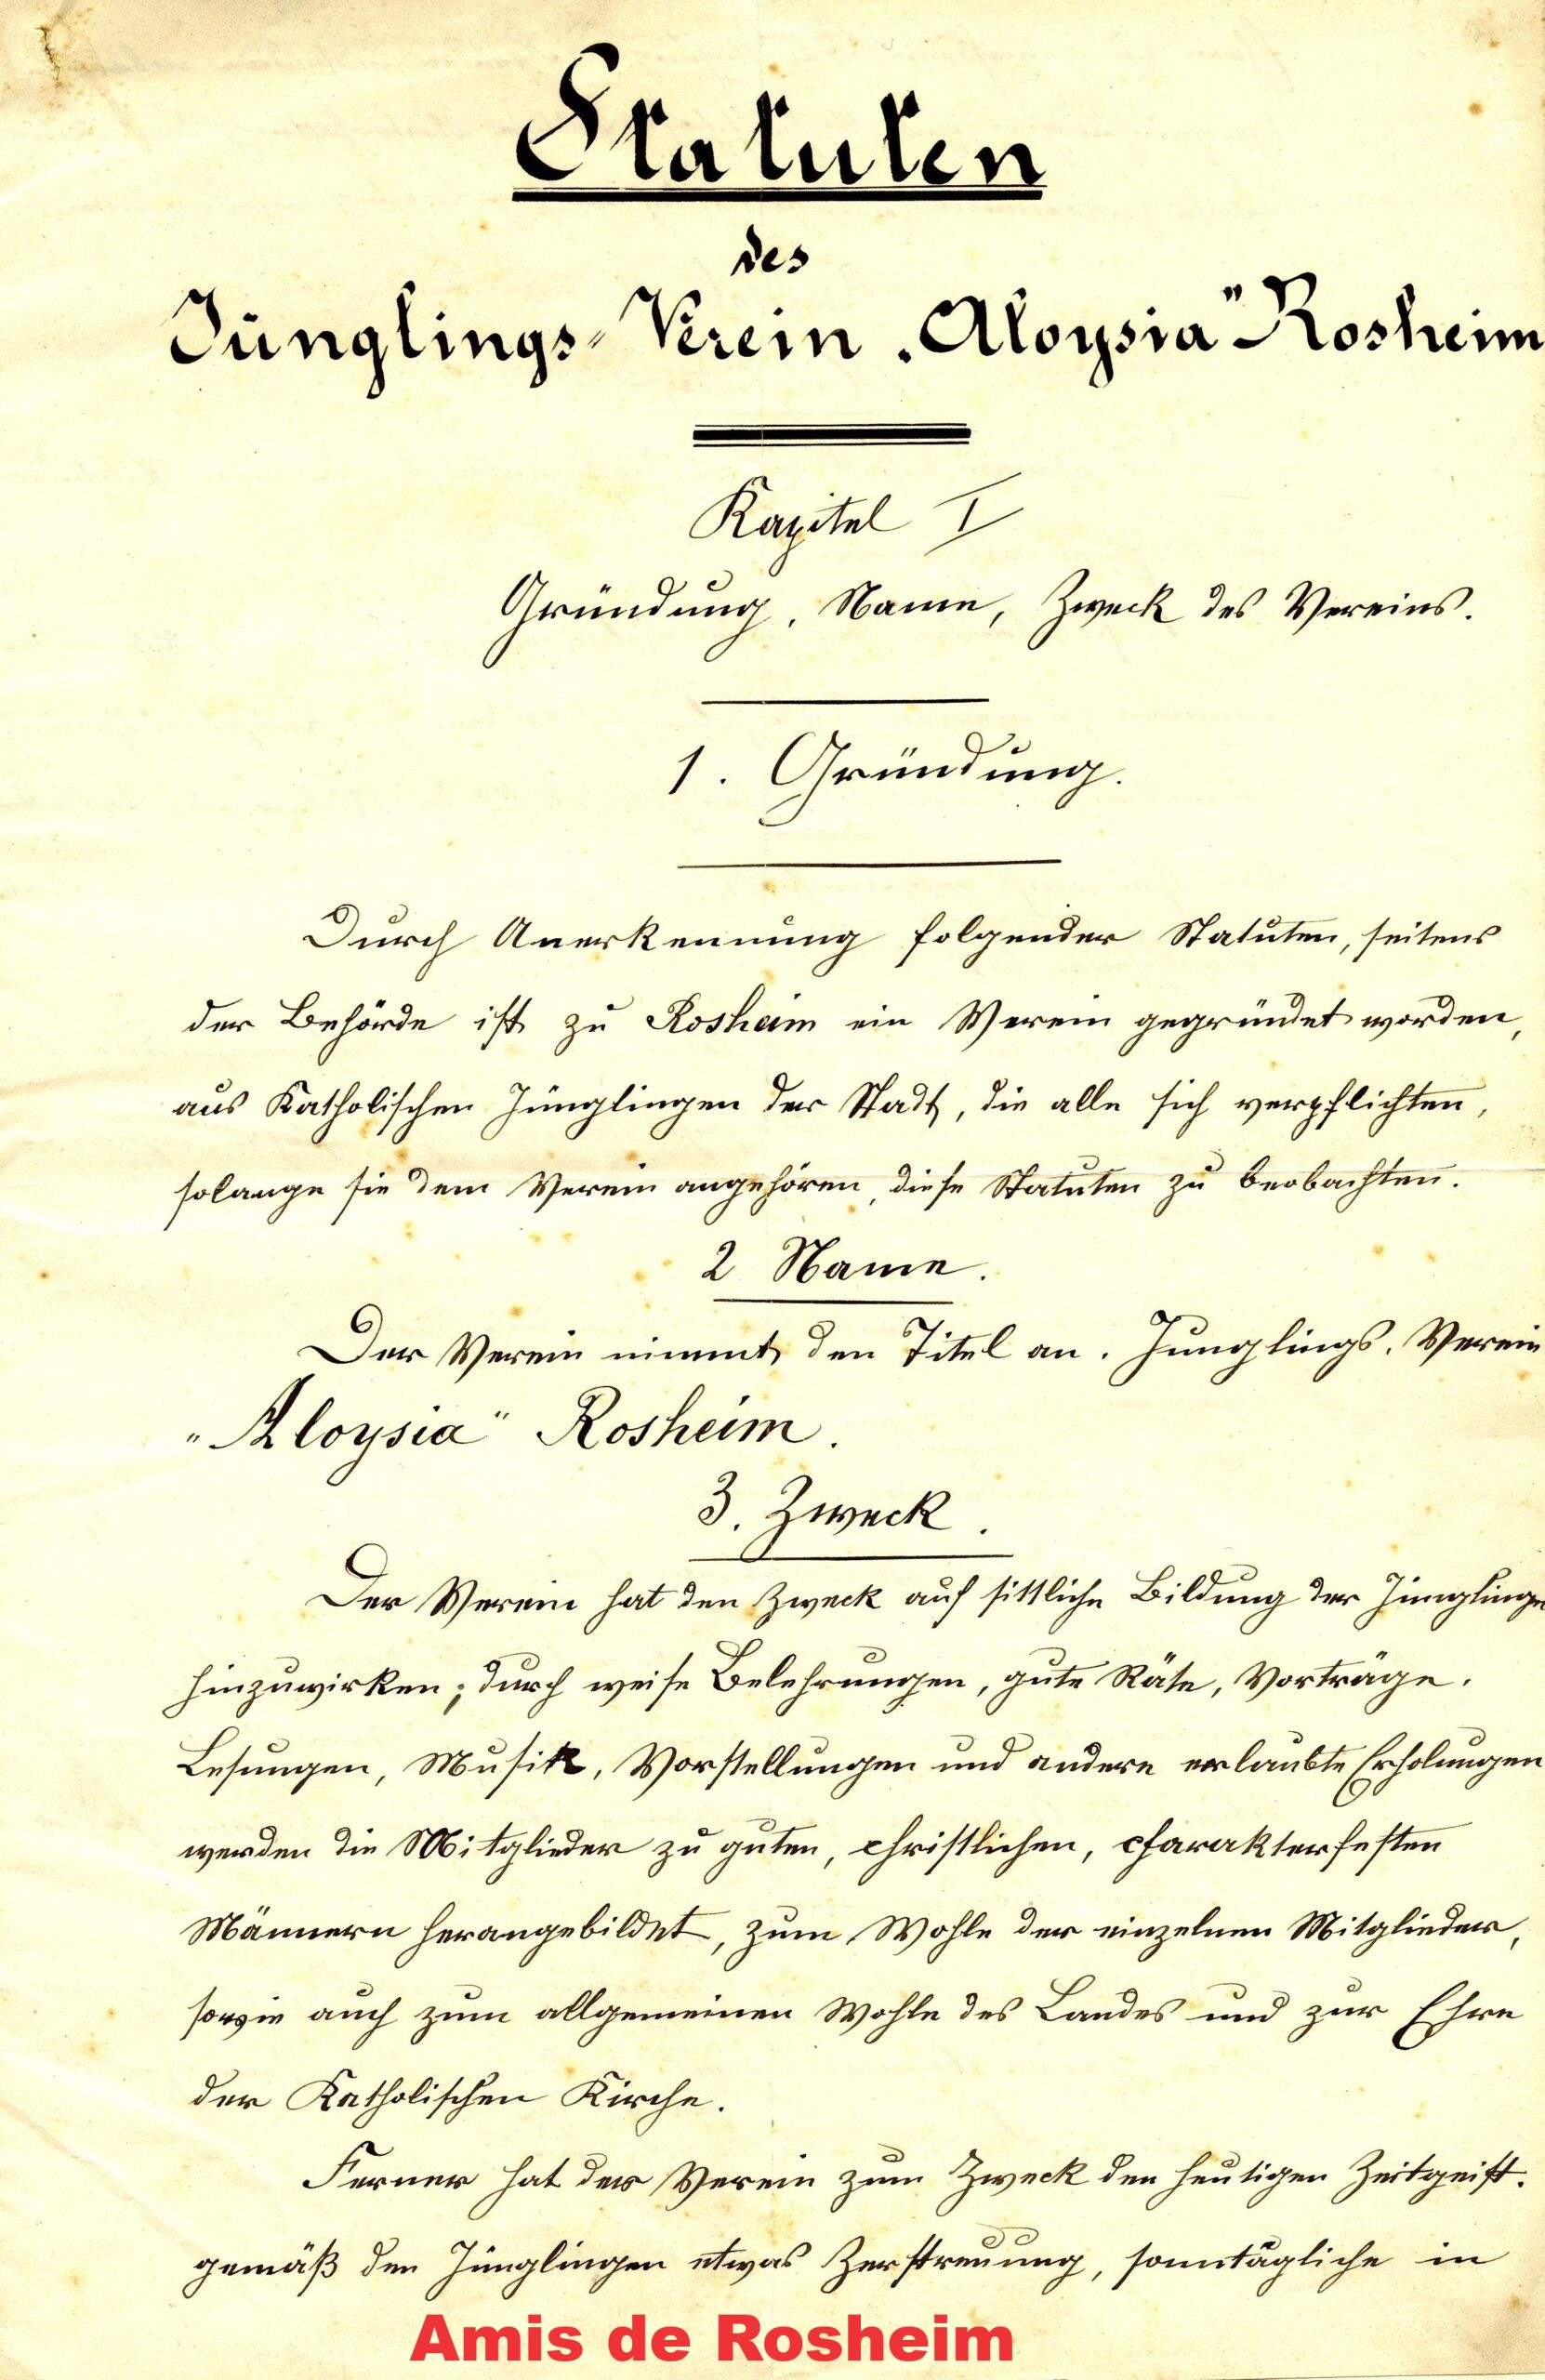 Statuten
des
Jünglings-Verein „Aloysia" Rosheim
Kapitel I
Gründung, Name, Zweck des Vereins.
1. Gründung.
Durch Anerkennung folgender Statuten, seitens
der Behörde ist zu Rosheim ein Verein gegründet worden,
aus Katholischen Jünglingen der Stadt, die alle sich verpflichten,
solange sie dem Verein angehören, diese Statuten zu beobachten.
2 Name.
Der Verein nimmt den Titel an. Junglings. Verein
„Aloysia" Rosheim.
3. Zweck.
Der Verein hat den Zweck auf sittliche Bildung der Jünglinge
hinzuwirken; durch weise Belehrungen, gute Räte, Vorträge.
Lesungen, Musik, Vorstellungen und andere erlaubte Erholungen
werden die Mitglieder zu guten, christlichen, charakterfesten
Männern herangebildet, zum Wohle der einzelnen Mitglieder,
sowie auch zum allgemeinen Wohle des Landes und zur Ehre
der Katholischen Kirche.
Ferner hat der Verein zum Zweck den heutigen Zeitgeist.
gemäß den Jünglingen etwas Zerstreuung, sonntägliche in
Amis de Rosheim